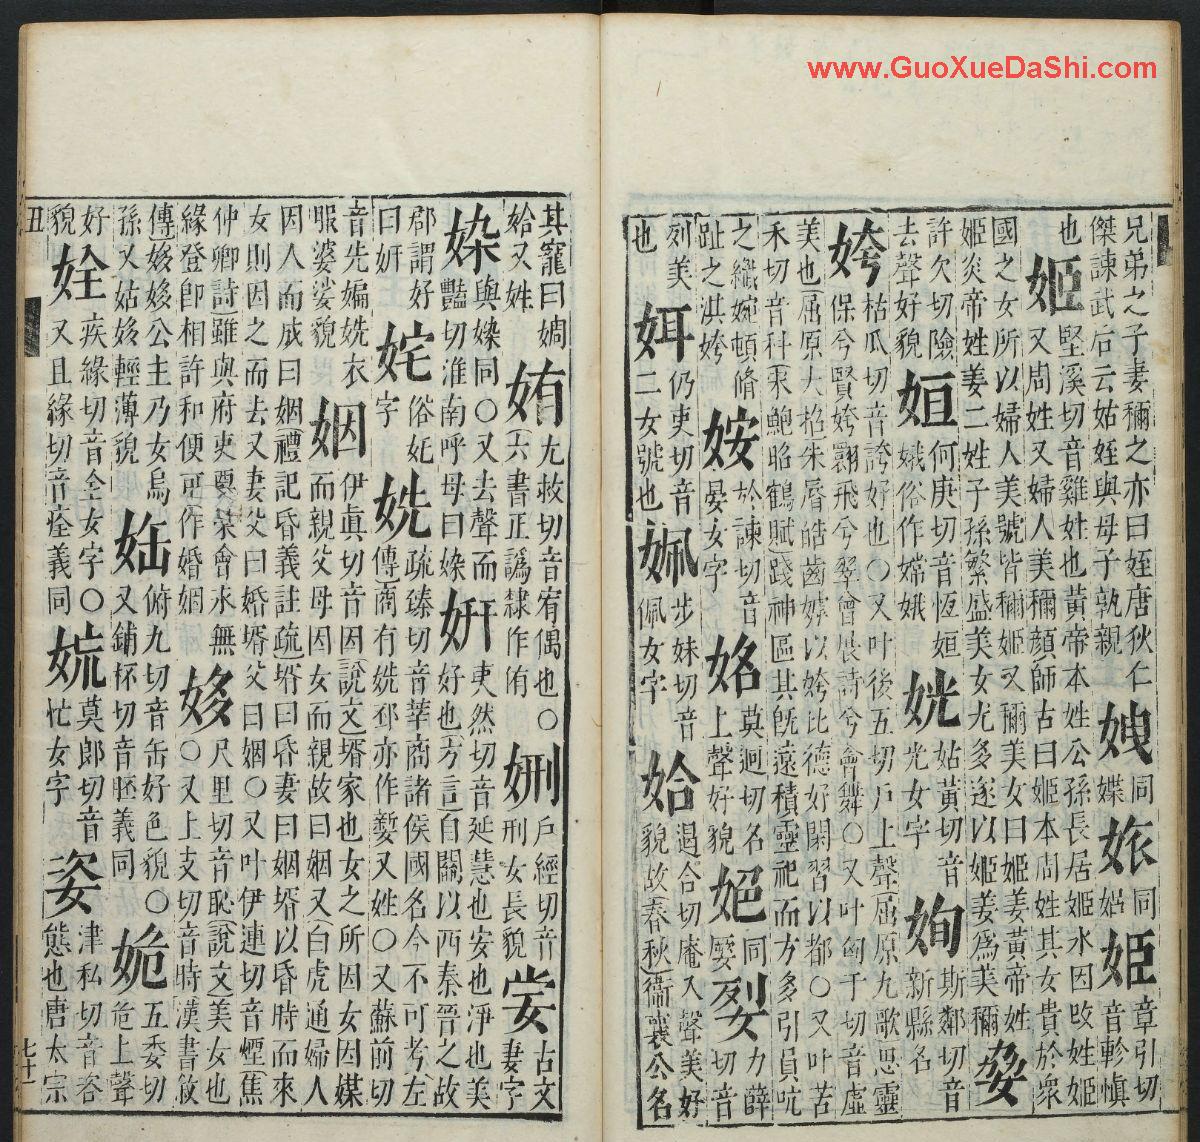 兄弟之子妻稱之亦曰姪唐狄仁
傑諫武后云姑姪與母子孰親
同
媟
同
姬
章引切
音軫愼
也
姬
堅溪切音雞姓也黃帝本姓公孫長居姬水因改姓姬
又周姓又婦人美稱顏師古曰姬本周姓其女貴於衆
國之女所以婦人美號皆稱姬又稱美女曰姬姜黃帝姓
姬炎帝姓姜二姓子孫繁盛美女尤多遂以姬姜爲美稱
許欠切險
去聲好貌
姮
何庚切音恆姮
娥俗作嫦娥
姯
姑黃切音
光女字
姰
斯鄰切音
新縣名
姱
枯瓜切音誇好也〇又叶後五切戶上聲屈原九歌思靈
保兮賢姱翾飛兮翠曾展詩兮會舞〇又叶匈于切音虛
美也屈原大招朱脣皓齒嫭以姱比德好閑習以都〇又叶苦
禾切音科宋鮑昭鶴賦踐神區其旣遠積靈祀而方多引員吭
之纖婉頓脩
趾之洪姱
姲
於諫切音
晏女字
姳
莫迥切名
上聲好貌
同
力薛
切音
列美
也
㛅
仍吏切音
二女號也
姵
步妹切音
佩女字
姶
遏合切庵入聲美好
貌故春秋衞襄公名
其寵曰婤
姶又姓
姷
尤救切音宥偶也〇
六書正譌隸作侑
戶經切音
刑女長貌
古文
妻字
與媣同〇又去聲而
豔切淮南呼母曰媣
姸
夷然切音延慧也安也淨也美
好也方言自關以西秦晉之故
郡謂好
曰姸
姹
俗奼
字
姺
疏臻切音莘商諸侯國名今不可考左
傳商有姺邳亦作㜪又姓〇又蘇前切
音先媥姺衣
服婆娑貌
姻
伊眞切音因說文壻家也女之所因女因媒
而親父母因女而親故曰姻又白虎通婦人
因人而成曰姻禮記昏義註疏壻曰昏妻曰姻壻以昏時而來
女則因之而去又妻父曰婚壻父曰姻〇又叶伊連切音煙焦
仲卿詩雖與府吏要渠會永無
緣登卽相許和便可作婚姻
姼
尺里切音恥說文美女也
〇又上支切音時漢書敘
傳姼姼公主乃女烏
孫又姑姼輕薄貌
俯九切音缶好色貌〇
又鋪杯切音胚義同
姽
五委切
危上聲
好
貌
姾
疾緣切音全女字〇
又且緣切音痊義同
莫郎切音
忙女字
姿
津私切音咨
態也唐太宗
丑
七十一
www.GuoXueDaShi.com